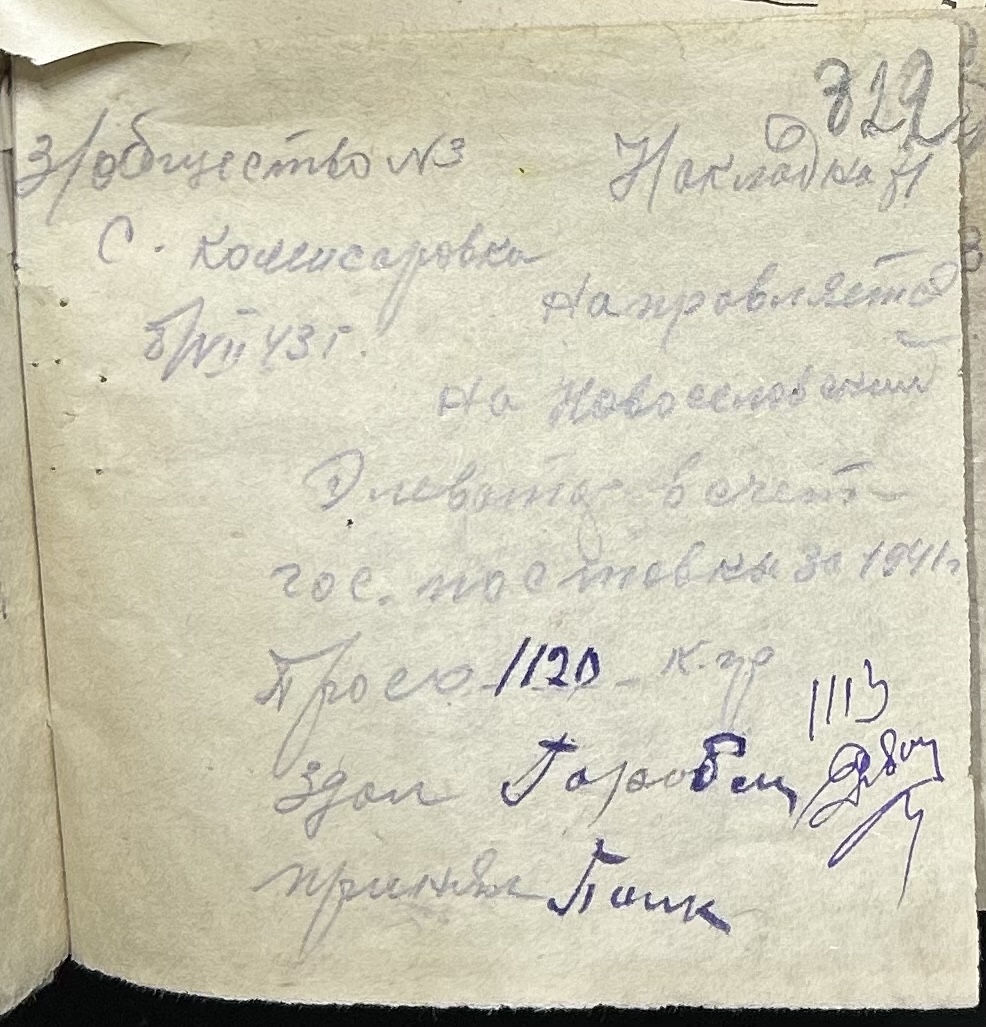 822
З/общество N3 Накладная
С. Комисаровка
8/VII 43 г. Направляется
на Новоселовский
Элеватор в счет
гос. поставки за 1941г
Просо 1120 к.гр
1113
Здал Горобец
принял Паик